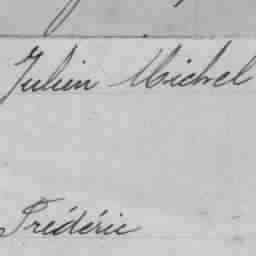 Julien Michel
Frédéric